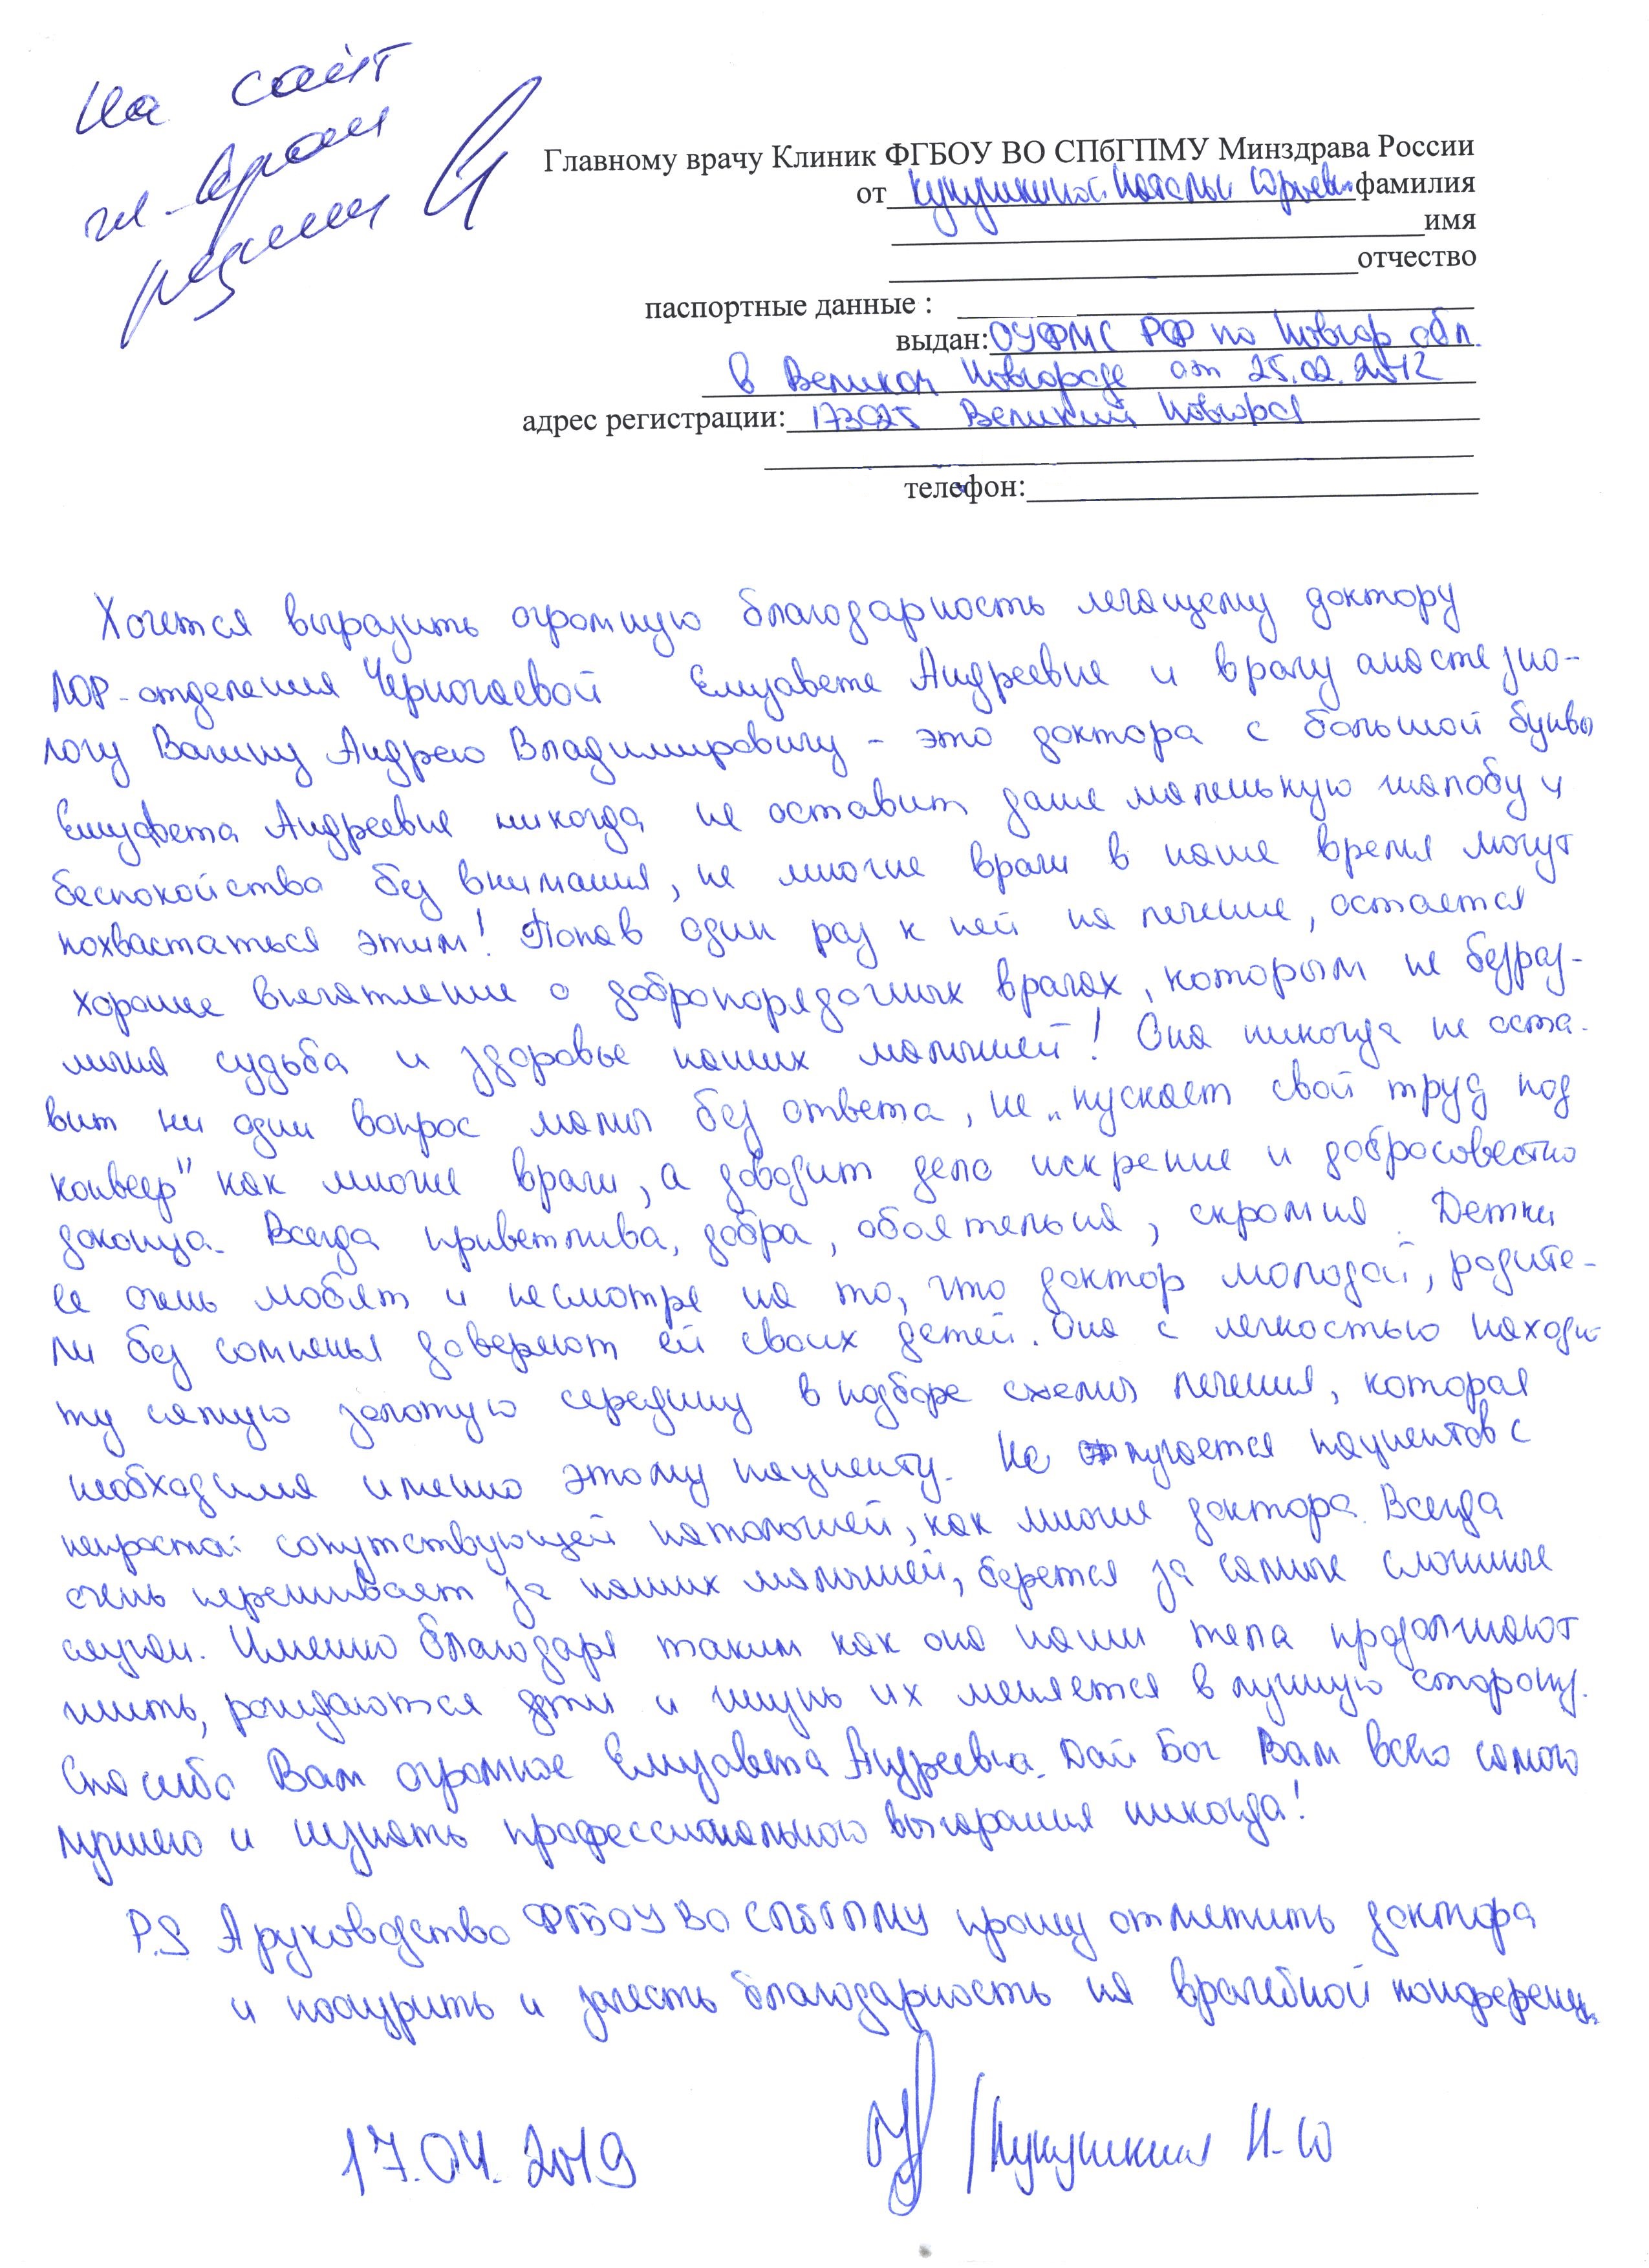 На сайт
гл. врач
Главному врачу Клиник ФГБОУ ВО СПбГПМУ Минздрава России
от Кукушкиной Натальи Юрьевн фамилия
имя
отчество
паспортные данные :
выдан: ОУФМС РФ по Новгор обл.
в Великом Новгороде от 25.02.2012
адрес регистрации: 173025 Великий Новгород
телефон:
Хочется выразить огромную благодарность лечащему доктору
ЛОР-отделения Черногаевой Елизавете Андреевне и врачу анастезио-
логу Вагину Андрею Владимировичу - это доктора с большой буквы
Елизавета Андреевне никогда не оставит даже маленькую жалобу и
беспокойство без внимания, не многие врачи в наше время могут
похвастаться этим! Попав один раз к ней на лечение, остается
хорошее впечатление о добропорядочных врачах, которым не безраз-
лична судьба и здоровье наших малышей! Она никогда не оста-
вит ни один вопрос мамы без ответа, не „пускает свой труд под
конвеер" как многие врачи, а доводит дело искренне и добросовестно
доконца. Всегда приветлива, добра, обоятельна, скромна. Детки
ее очень любят и несмотря на то, что доктор молодой, родите-
ли без сомненья доверяют ей своих детей. Она с легкостью находи
ту самую золотую середину в подборе схемы лечения, которая
необходима именно этому пациенту. Не пугается пациентов с
непростой сопутствующей патологией, как многие доктора. Всегда
очень переживает за наших малышей, берется за самые сложные
случаи. Именно благодаря таким как она наши тела продолжают
жить, рождаются дети и жизнь их меняется в лучшую сторону.
Спасибо Вам огромное Елизавета Андреевна. Дай Бог Вам всего самого
лучшего и не знать профессионального выгорания никогда!
P.S А руководство ФГБОУ ВО СПбГПМУ прошу отметить доктора
и поощрить и зачесть благодарность на врачебной конференц.
17.04.2019
/Кукушкина Н.Ю